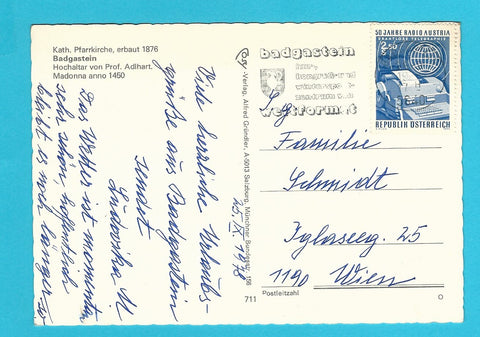 Kath. Pfarrkirche, erbaut 1876
Badgastein
Hochaltar von Prof. Adlhart.
Madonna anno 1450
Viele herrliche Urlaubs-
grüße aus Badgastein
sendet
Ludovika M
Das Wetter ist momentan
sehr schön, hoffentlich
bleibt es noch länger so
25.IX.1978
Cosy-Verlag, Alfred Gründler, A-5013 Salzburg, Münchner Bundesstr. 156
711
badgastein
kur-,
kongreß- und
wintersport-
zentrum von
weltformat
50 JAHRE RADIO AUSTRIA
DRAHTLOSE TELEGRAPHIE
2.50
S
REPUBLIK ÖSTERREICH
Familie
Schmidt
Iglaseeg. 25
1190 Wien
Postleitzahl